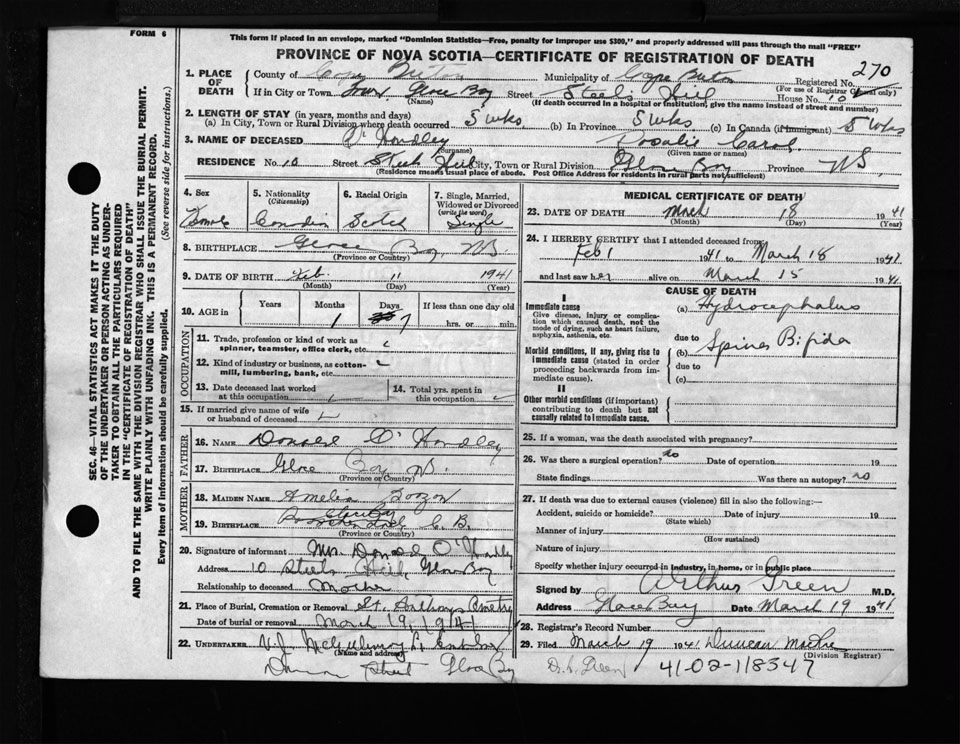 FORM 6
This form if placed in an envelope, marked "Dominion Statistics—Free, penalty for improper use $300," and properly addressed will pass through the mail "FREE"
PROVINCE OF NOVA SCOTIA—CERTIFICATE OF REGISTRATION OF DEATH
SEC. 46—VITAL STATISTICS ACT MAKES IT THE DUTY
OF THE UNDERTAKER OR PERSON ACTING AS UNDER-
TAKER TO OBTAIN ALL THE PARTICULARS REQUIRED
IN THE "CERTIFICATE OF REGISTRATION OF DEATH"
AND TO FILE THE SAME WITH THE DIVISION REGISTRAR WHO SHALL ISSUE THE BURIAL PERMIT.
WRITE PLAINLY WITH UNFADING INK. THIS IS A PERMANENT RECORD.
Every item of information should be carefully supplied. (See reverse side for instructions.)
1. PLACE OF DEATH County of Cape Breton Municipality of Cape Breton Registered No. 270
(For use of Registrar General only)
If in City or Town Town Glace Bay Street Steele's Hill House No. 10
(Name) (If death occurred in a hospital or institution, give the name instead of street and number)
2. LENGTH OF STAY (in years, months and days)
(a) In City, Town or Rural Division where death occurred 5 wks. (b) In Province 5 wks (c) In Canada (if immigrant) 5 wks
3. NAME OF DECEASED O'Handley Rosalie Carol
(Surname) (Given name or names)
RESIDENCE No. 10 Street Steeles Hill City, Town or Rural Division Glace Bay Province NS.
(Residence means usual place of abode. Post Office Address for residents in rural parts not sufficient)
4. Sex Female
5. Nationality (Citizenship) Canadian
6. Racial Origin Scotch
7. Single, Married, Widowed or Divorced (write the word) Single
8. BIRTHPLACE Glace Bay NS.
(Province or Country)
9. DATE OF BIRTH Feb. 11 1941
(Month) (Day) (Year)
10. AGE in Years Months 1 Days 7 If less than one day old hrs. or min.
OCCUPATION
11. Trade, profession or kind of work as spinner, teamster, office clerk, etc.
12. Kind of industry or business, as cotton-mill, lumbering, bank, etc.
13. Date deceased last worked at this occupation
14. Total yrs. spent in this occupation
15. If married give name of wife or husband of deceased
FATHER
16. NAME Donald O'Handley
17. BIRTHPLACE Glace Bay NS.
(Province or Country)
MOTHER
18. MAIDEN NAME Amelia
19. BIRTHPLACE C. B.
(Province or Country)
20. Signature of informant Mrs. Donald O'Handley
Address 10 Steeles Hill, Glace Bay
Relationship to deceased Mother
21. Place of Burial, Cremation or Removal St. Anthonys Cemetry
Date of burial or removal March 19, 1941
22. UNDERTAKER V.J. McGillivray
(Name and address)
Street Glace Bay
MEDICAL CERTIFICATE OF DEATH
23. DATE OF DEATH March 18 1941
(Month) (Day) (Year)
24. I HEREBY CERTIFY that I attended deceased from
Feb 1 1941 to March 18 1941
and last saw her alive on March 15 1941
CAUSE OF DEATH
I
Immediate cause
Give disease, injury or complication which caused death, not the mode of dying, such as heart failure, asphyxia, asthenia, etc.
(a) Hydrocephalus
due to
Morbid conditions, if any, giving rise to immediate cause (stated in order proceeding backwards from immediate cause).
(b) Spina Bifida
due to
(c)
II
Other morbid conditions (if important) contributing to death but not causally related to immediate cause.
25. If a woman, was the death associated with pregnancy?
26. Was there a surgical operation? no Date of operation 19
State findings Was there an autopsy? no
27. If death was due to external causes (violence) fill in also the following:—
Accident, suicide or homicide? Date of injury 19
(State which)
Manner of injury
(How sustained)
Nature of injury
Specify whether injury occurred in industry, in home, or in public place
Signed by Arthur Green M.D.
Address Glace Bay Date March 19 1941
28. Registrar's Record Number
29. Filed March 19 1941 Duncan
(Division Registrar)
41-02-118347